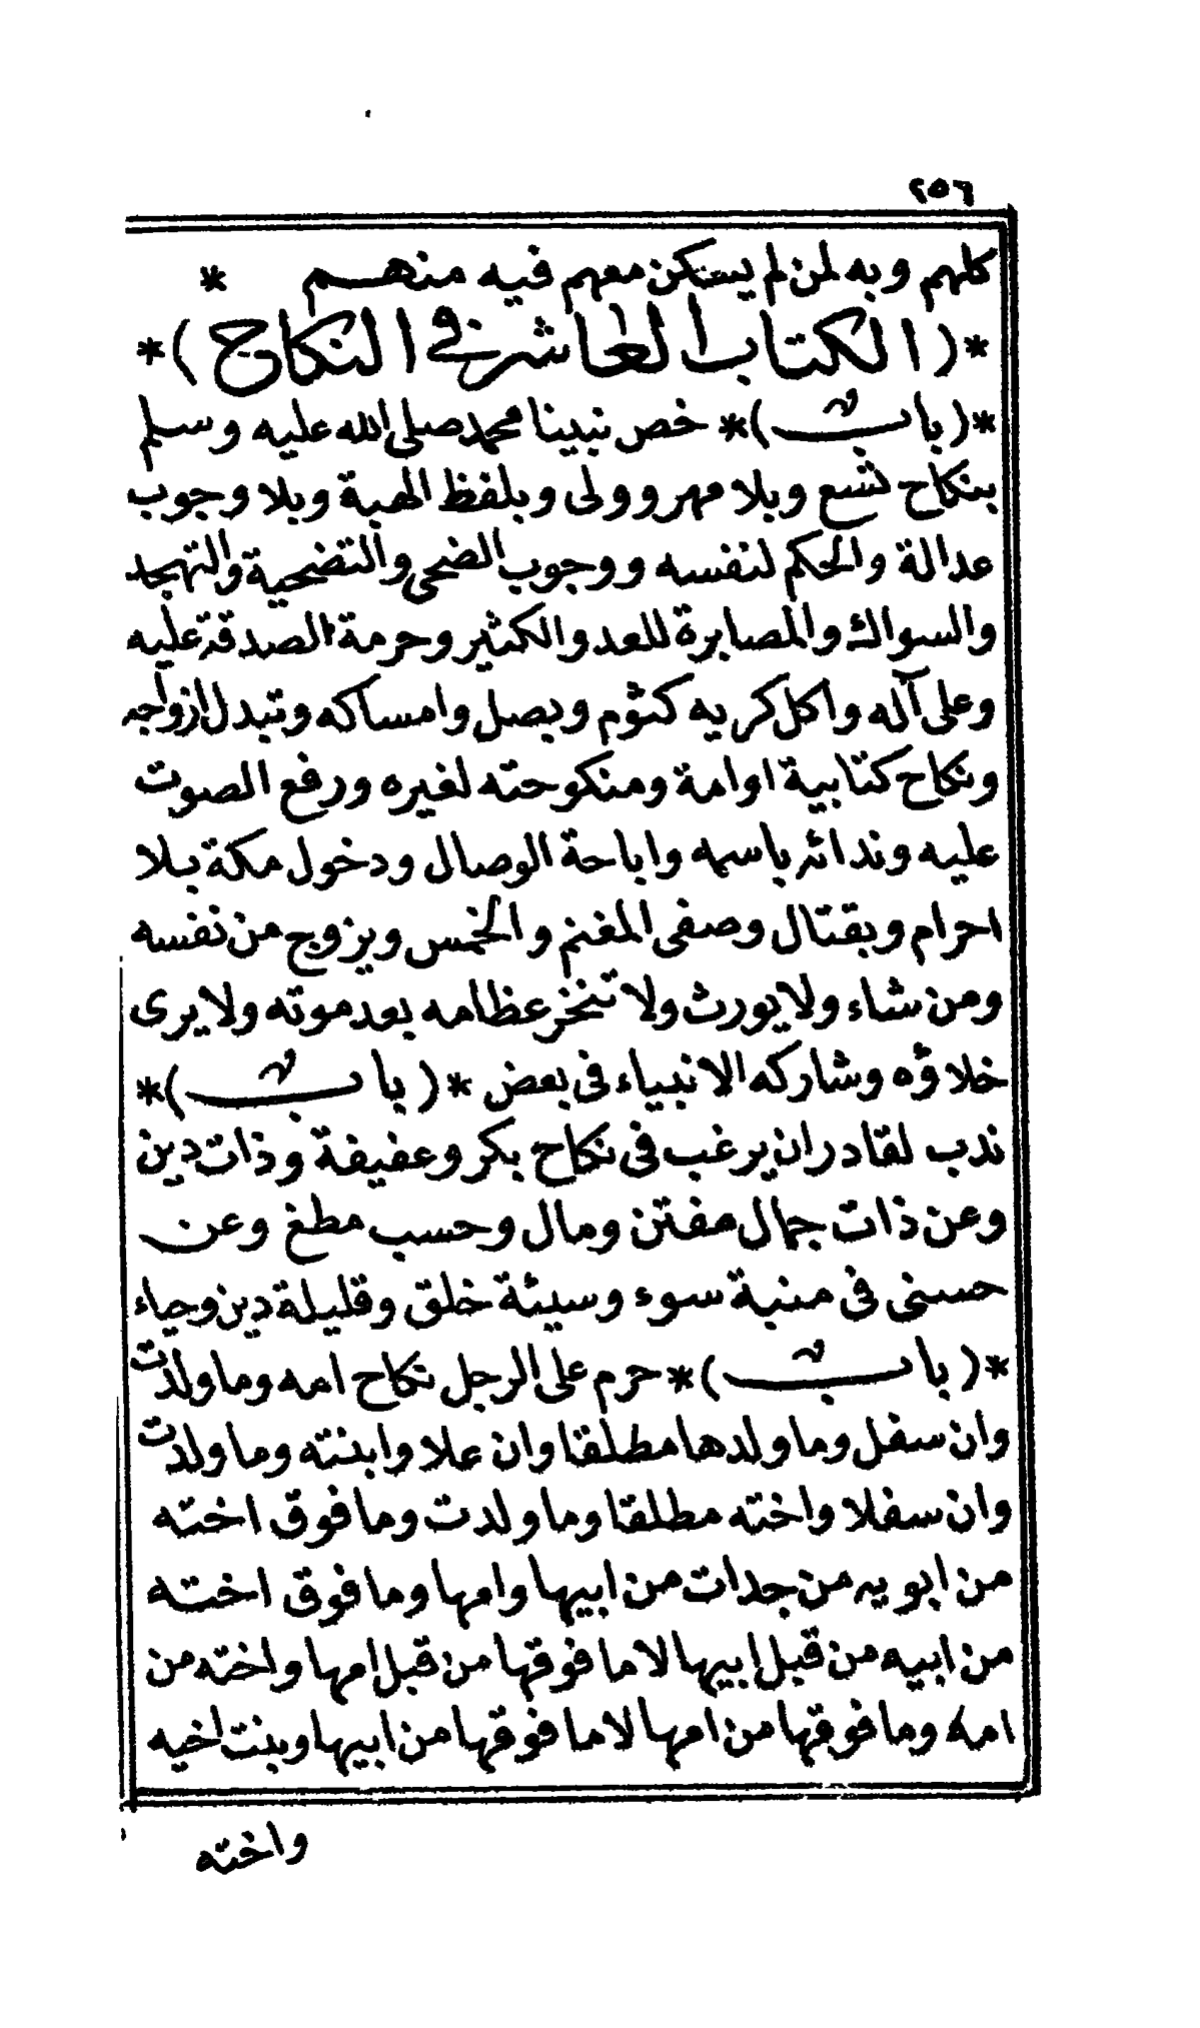 ٢٥٦
كلهم وبه لمن لم يستكن معهم فيه منهم *
*( الكتاب العاشر في النكاح )*
*( باب )* خص نبينا محمد صلى الله عليه وسلم
بنكاح تسع وبلا مهر وولى وبلفظ الهبة وبلا وجوب
عدالة والحكم لنفسه ووجوب الضحى والتضحية والتهجد
والسواك والمصابرة للعدو الكثير وحرمة الصدقة عليه
وعلى آله واكل كريه كثوم وبصل وامساكه وتبدل ازواجه
ونكاح كتابية او امة ومنكوحته لغيره ورفع الصوت
عليه وندائه باسمه واباحة الوصال ودخول مكة بلا
احرام وبقتال وصفى المغنم والخمس ويزوج من نفسه
ومن شاء ولا يورث ولا تنخر عظامه بعد موته ولا يرى
خلاؤه وشاركه الانبياء فى بعض *( باب )*
ندب لقادر ان يرغب فى نكاح بكر وعفيفة وذات دين
وعن ذات جمال مفتن ومال وحسب مطغ وعن
حسنى فى منبة سوء وسيئة خلق وقليلة دين وحياء
*( باب )* حرم على الرجل نكاح امه وما ولدت
وان سفل وما ولدها مطلقا وان علا وابنته وما ولدت
وان سفلا واخته مطلقا وما ولدت وما فوق اخته
من ابويه من جدات من ابيها وامها وما فوق اخته
من ابيه من قبل ابيها لا ما فوقها من قبل امها واخته من
امه وما فوقها من امها لا ما فوقها من ابيها وبنت اخيه
واخته